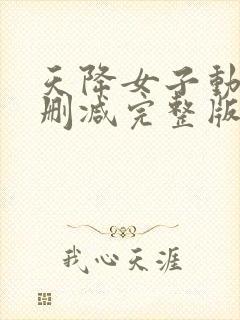 天降女子動
刪減完整版
我心天涯